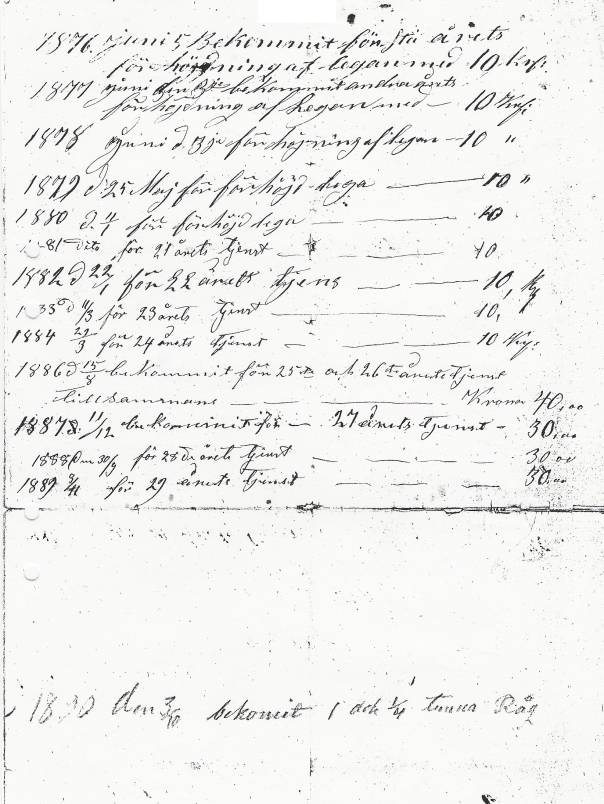 1876 juni 5 Bekommit förssta årets
förhöjdning af legan med 10 Kr:
1877 juni den 3je bekommit andra årets
förhöjdning af Legan med — 10 Kr:
1878 Juni d. 3je förhöjning af legan — 10 "
1879 d. 25 Maj för förhöjd lega — 10 "
1880 d. 4/1 för förhöjd lega — 10
1881 dito för 21 årets tjenst — 10
1882 d 22/1 för 22 årets tjens — 10, Kr
1883 d 11/3 för 23 årets tjenst — 10,
1884 22/3 för 24 årets tjenst — 10 Kr:
1886 d 15/8 bekommit för 25te och 26te årets tjenst
tillsammans — Kronor 40,00
1887 d. 11/12 bekommit för — 27 årets tjenst — 30,00
1888 den 30/9 för 28de årets tjenst — 30 00
1889 3/11 för 29 årets tjenst — 30,00
1890 den 3/10 bekomit 1 och 1/4 tunna Råg